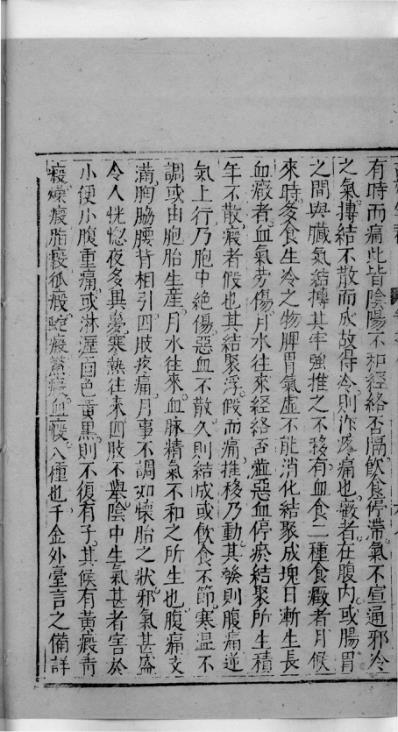 有時而痛此皆陰陽不和經絡否隔飲食停滯氣不宣通邪冷
之氣摶結不散而成故得冷則作疼痛也癥者在腹內或腸胃
之間與臟氣結摶其牢強推之不移有血食二種食癥者月候
來時多食生冷之物脾胃氣虛不能消化結聚成塊日漸生長
血癥者血氣勞傷月水往來經絡否澁惡血停瘀結聚所生積
年不散瘕者假也其結聚浮假而痛推移乃動其發則腹痛逆
氣上行乃胞中絕傷惡血不散久則結成或飲食不節寒溫不
調或由胞胎生產月水往來血脉精氣不和之所生也腹痛支
滿胸脇腰背相引四肢疼痛月事不調如懷胎之狀邪氣甚盛
令人恍惚夜多異憂寒熱往來四肢不舉陰中生氣甚者害於
小便小腹重痛或淋瀝面色黃黑則不復有子其候有黃瘕青
瘕燥瘕脂瘕狐瘕蛇瘕鱉瘕血瘕八種也千金外臺言之備詳